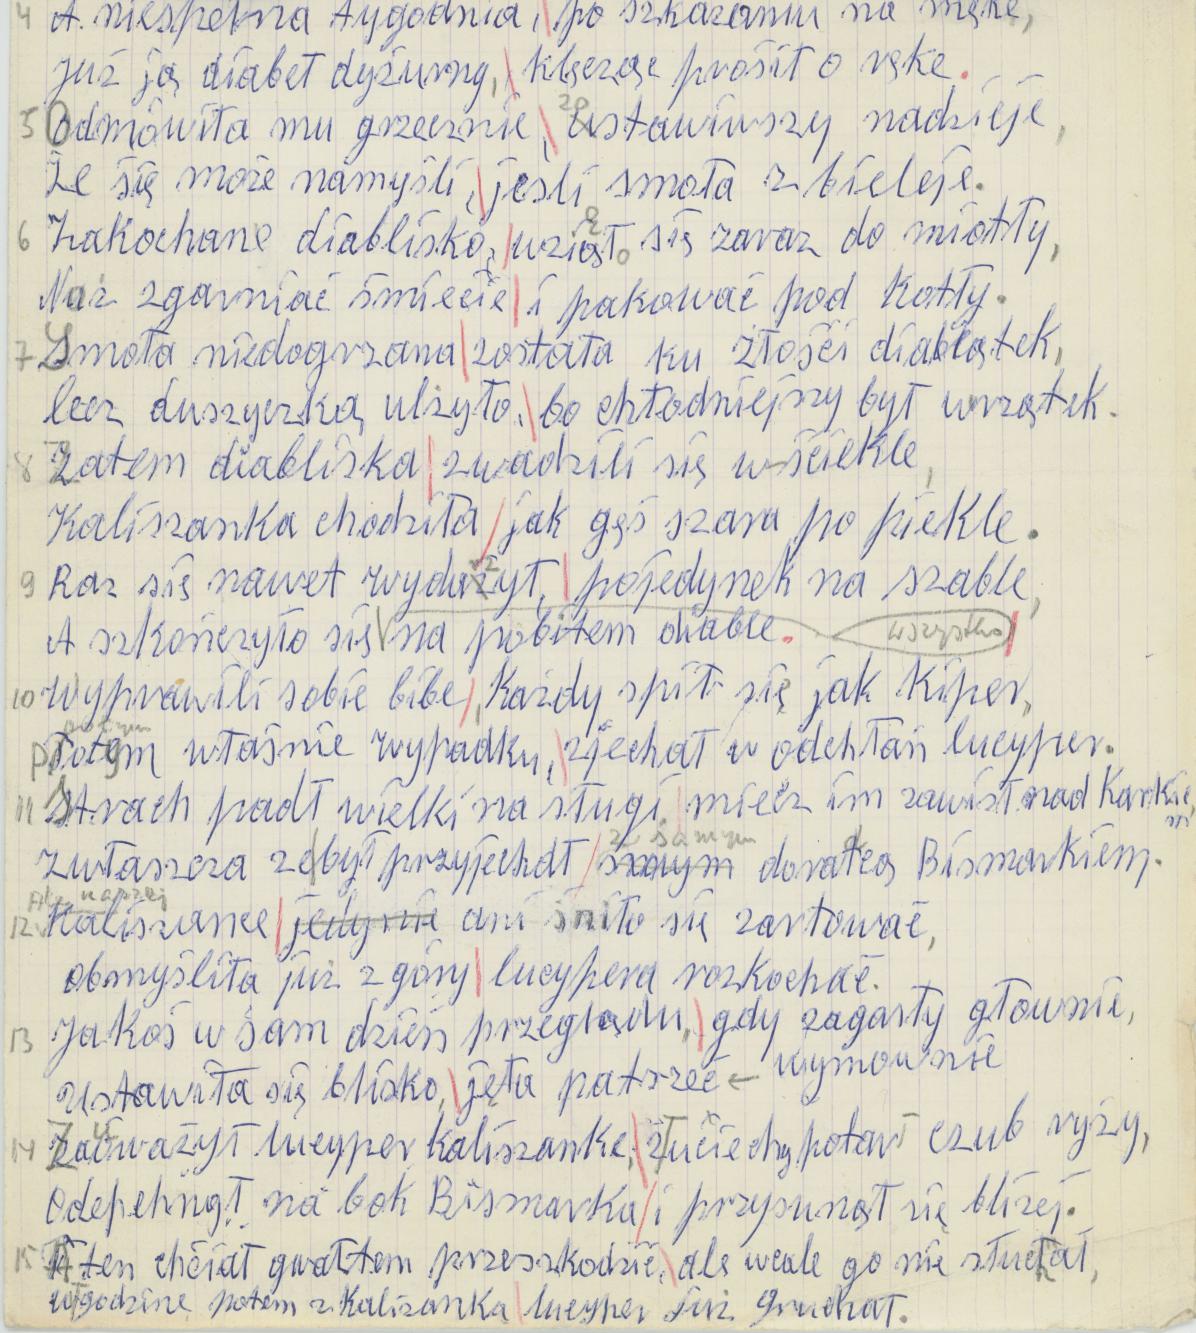 4 A. niespełna tygodnia, / po skazaniu na mękę,
Już ją diabeł dyżurny, / klęcząc prosił o rękę.
5 Odmówiła mu grzecznie, / zostawiwszy nadzieję,
Że się może namyśli, / jeśli smoła zbieleje.
6 Zakochane diablisko, / wzięło się zaraz do miotły,
Nuż zgarniać śmiecie / i pakować pod kotły.
7 Smoła niedogrzana / została ku złości diablątek,
lecz duszyczką ulżyło, / bo chłodniejszy był wrzątek.
8 Zatem diabliska / zwadzili się wściekle,
Kaliszanka chodziła / jak gęś szara po piekle.
9 Raz się nawet wydarzył, / pojedynek na szable,
A skończyło się na pobitem diable. wszystko /
10 Wyprawili sobie bibe, / Każdy spił się jak Kiper,
potym
Potem właśnie wypadku, / zjechał w odchłań lucyper.
11 Strach padł wielki na sługi / miecz im zawisł nad karkiem
z samym
zwłaszcza że był przyjechał / samym doradcą Bismarkiem.
Ale naszej
12 Kaliszance / jedynie ani śniło się żartować,
obmyśliła już z góry / lucypera rozkochać.
13 Jakoś w sam dzień przeglądu, / gdy zagasły głownie,
ustawiła się blisko, / jęła patrzeć ← wymownie
14 Zauważył lucyper kaliszankę, / z uciechy potarł czub ryży,
Odepchnął na bok Bismarka / i przysunął się bliżej.
15 A ten chciał gwałtem przeszkodzić, / ale wcale go nie słuchał,
w godzinę potem z kaliszanką / lucyper już gruchał.